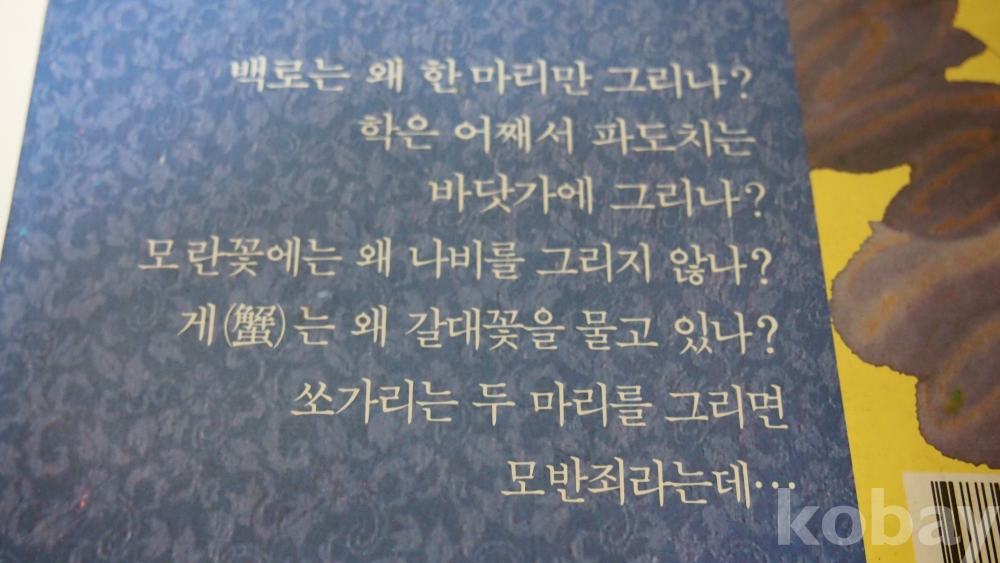 백로는 왜 한 마리만 그리나?
학은 어째서 파도치는
바닷가에 그리나?
모란꽃에는 왜 나비를 그리지 않나?
게(蟹)는 왜 갈대꽃을 물고 있나?
쏘가리는 두 마리를 그리면
모반죄라는데…
kobay